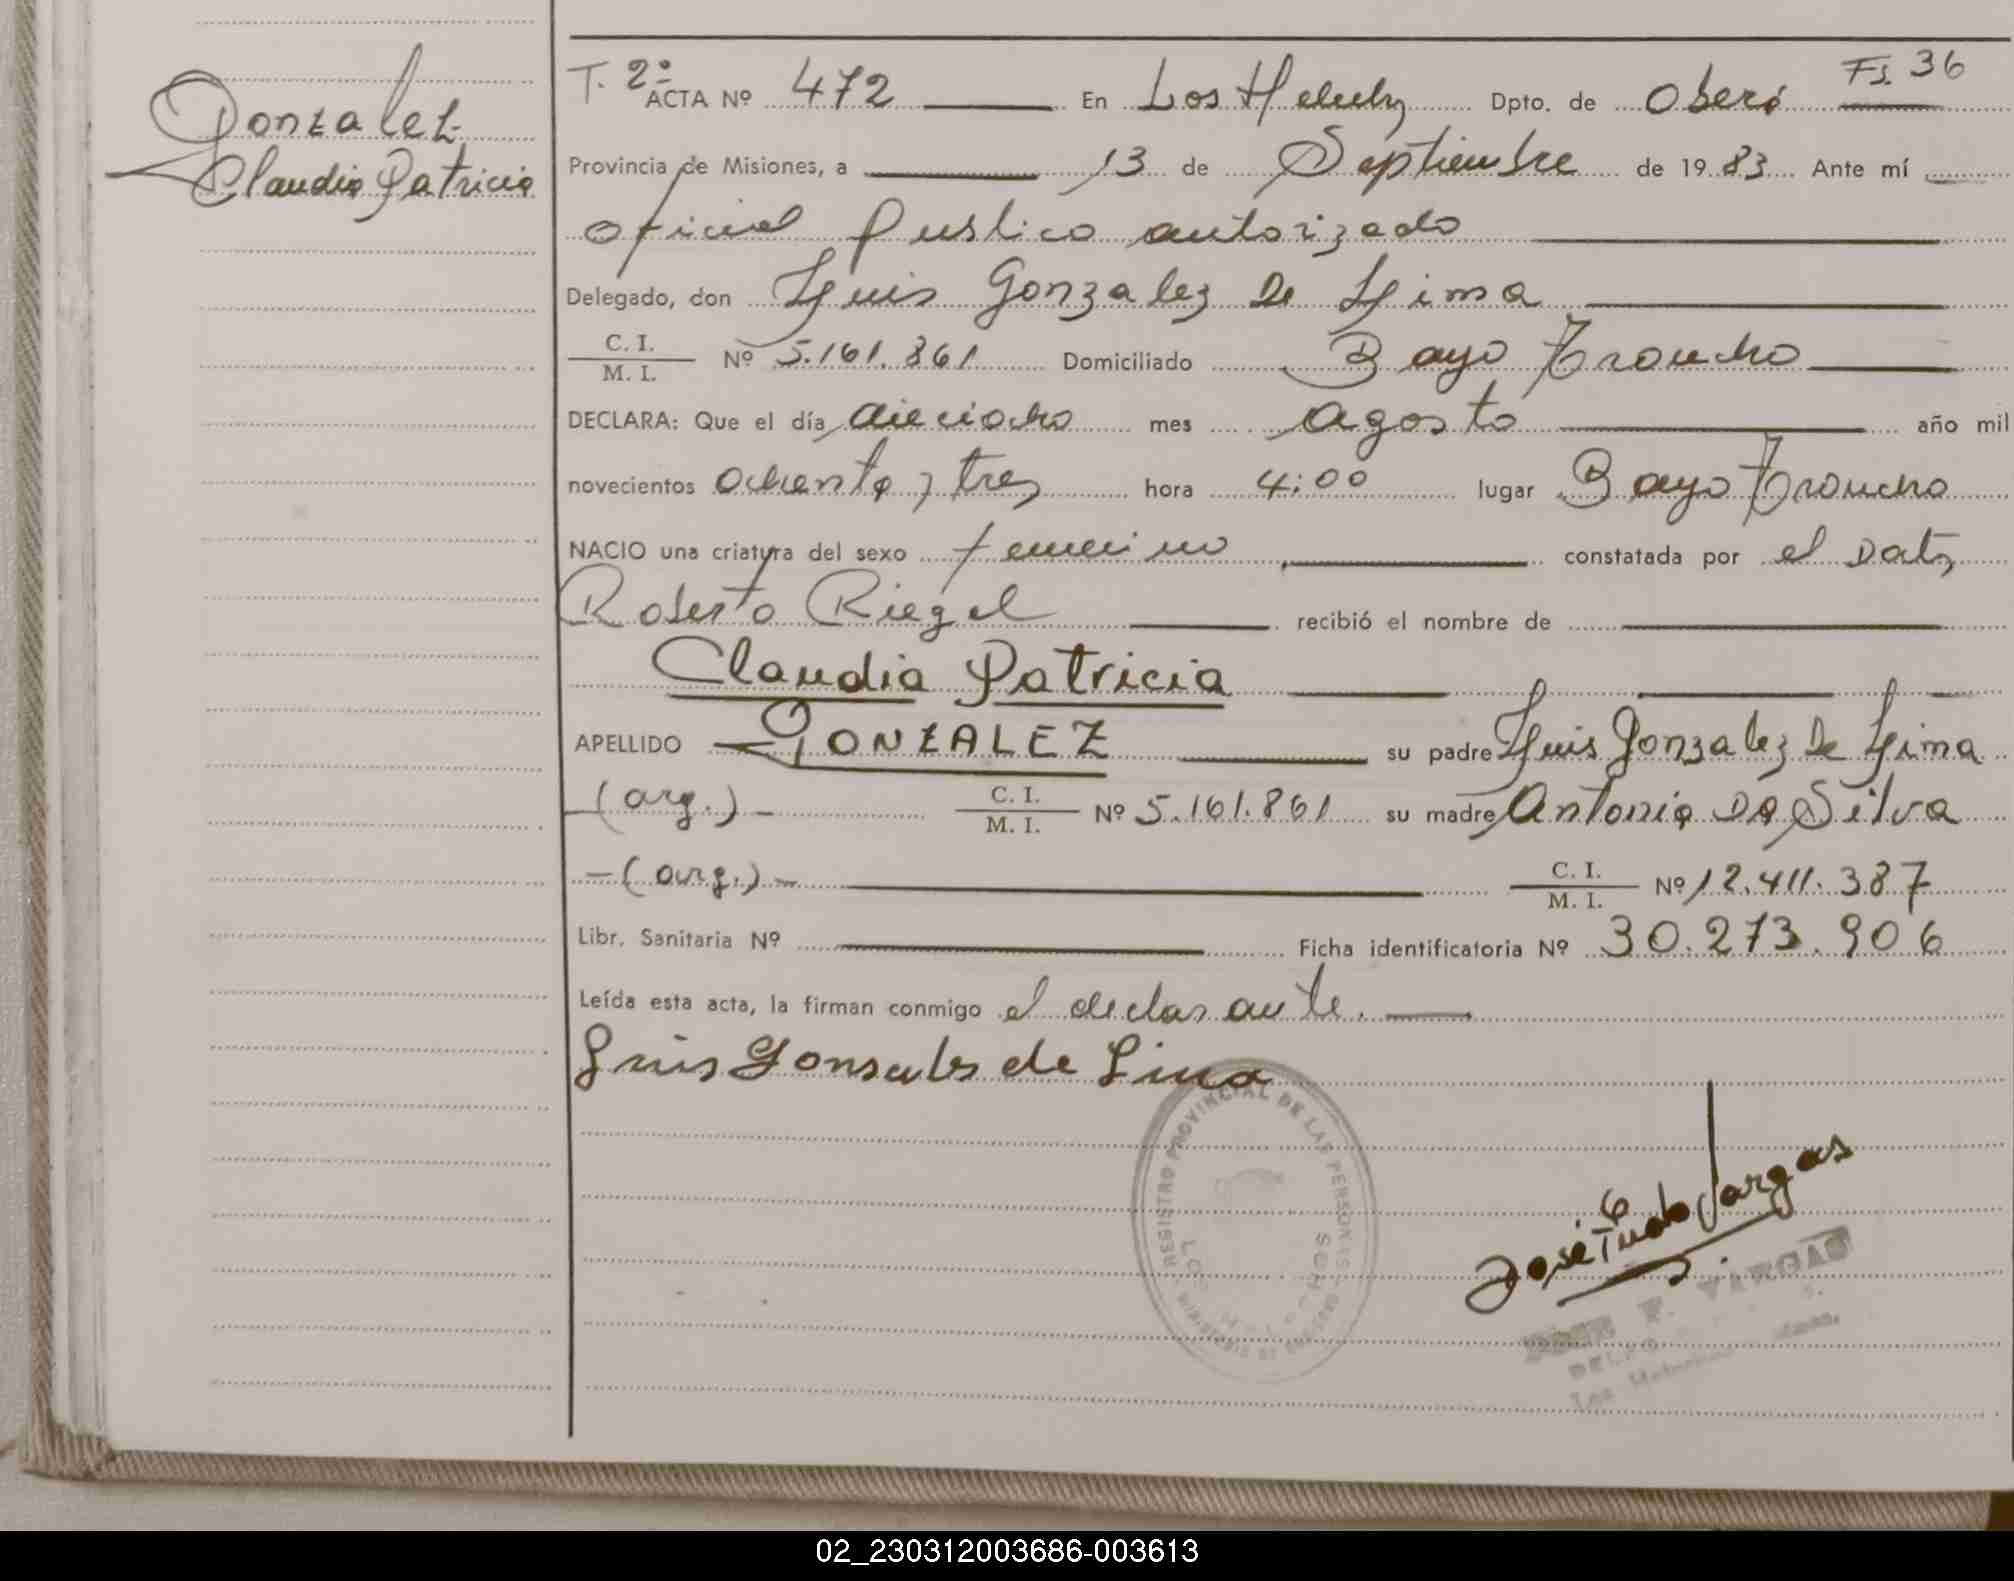 Gonzalez
Claudia Patricia
T. 2º Fs. 36
ACTA Nº 472 En Los Helechz Dpto. de Oberá
Provincia de Misiones, a 13 de Septiembre de 1983 Ante mí
oficial Publico autorizado
Delegado, don Luis Gonzalez De Lima
C. I.
M. I. Nº 5.161.861 Domiciliado Bayo Troncho
DECLARA: Que el día dieciocho mes agosto año mil
novecientos ochenta y tres hora 4:00 lugar Bayo Troncho
NACIO una criatura del sexo femenino constatada por el
Roberto Riegel recibió el nombre de
Claudia Patricia
APELLIDO GONZALEZ su padre Luis Gonzalez De Lima
-(arg.)- C. I.
M. I. Nº 5.161.861 su madre Antonia Da Silva
-(arg.)- C. I.
M. I. Nº 12.411.387
Libr. Sanitaria Nº Ficha identificatoria Nº 30.273.906
Leída esta acta, la firman conmigo el declarante.
Luis Gonsales de Lima
REGISTRO PROVINCIAL DE LAS PERSONAS
José Vargas
JOSE F. VARGAS
02_230312003686-003613